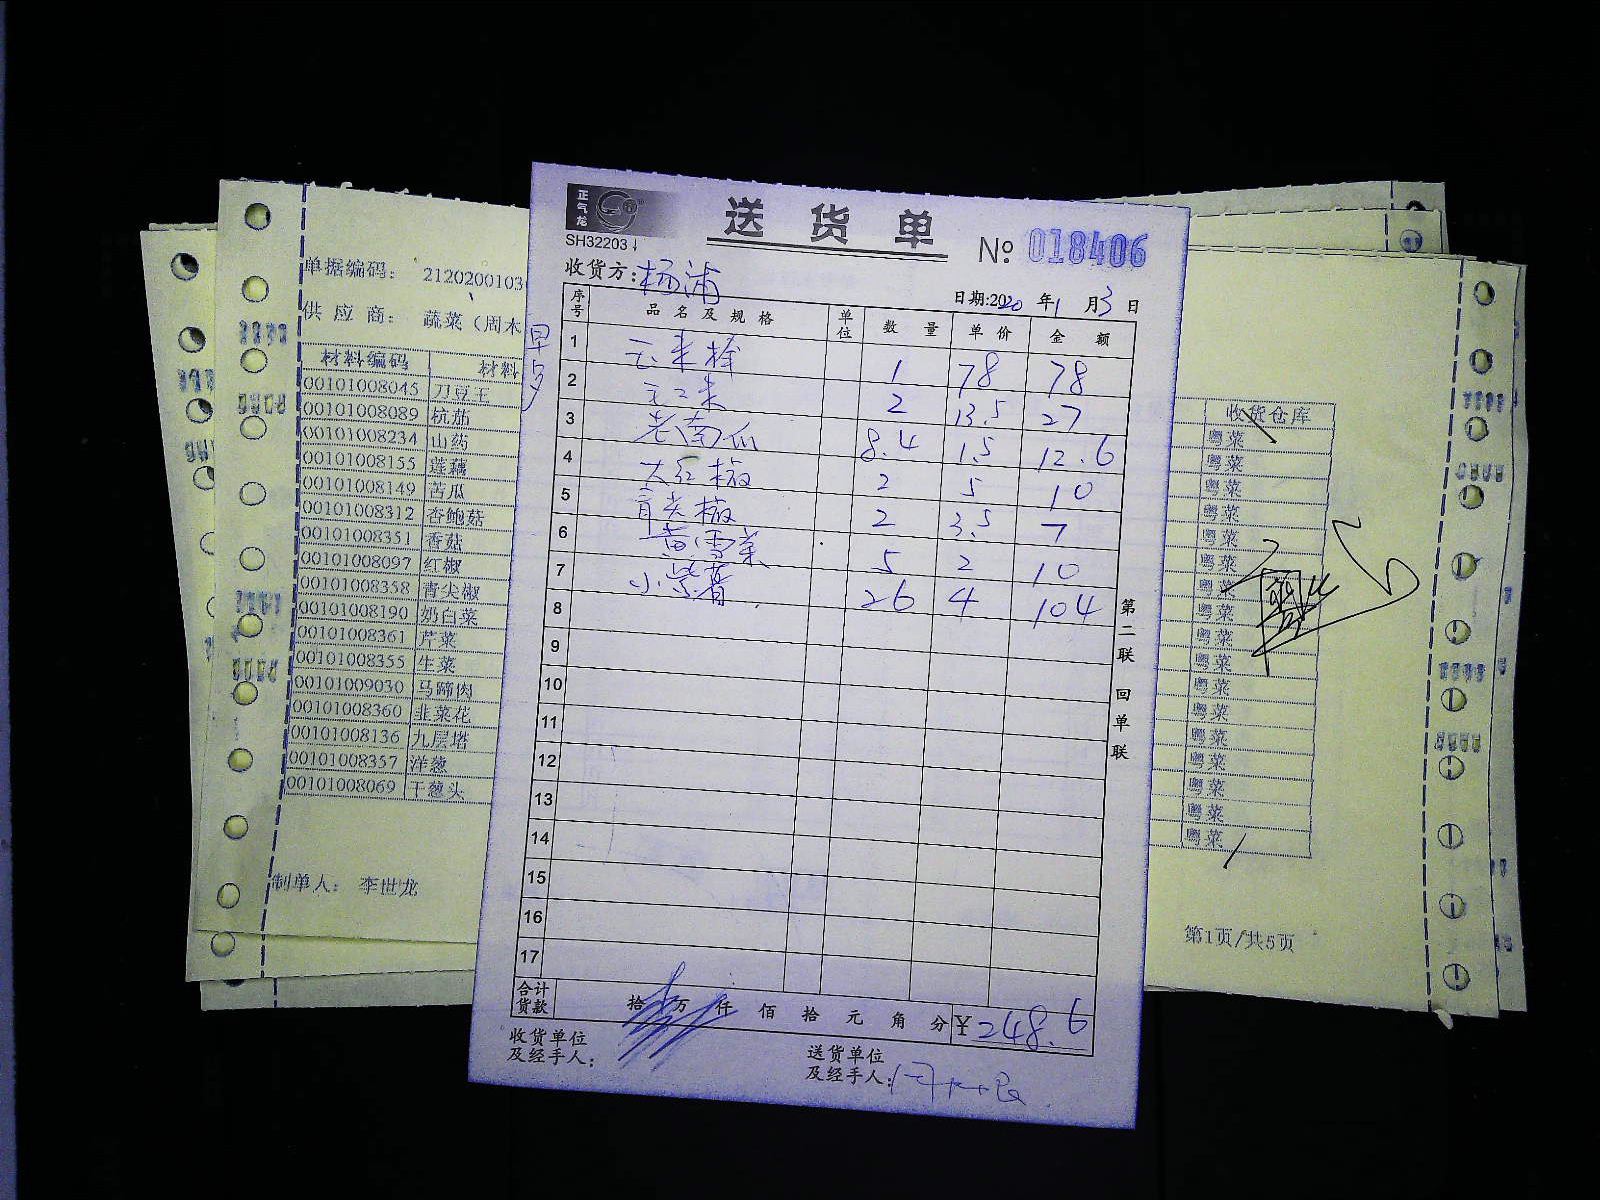 正气龙
SH32203
送货单
№ 018406
收货方:杨浦
日期:2020年1月3日
早点
序号 品名及规格 单位 数量 单价 金额
1 1 78 78
2 玉米 2 13.5 27
3 老南瓜 8.4 1.5 12.6
4 大红椒 2 5 10
5 青尖椒 2 3.5 7
6 5 2 10
7 小紫薯 26 4 104
8
9
10
11
12
13
14
15
16
17
合计货款 拾 万 仟 佰 拾 元 角 分 ¥248.6
收货单位及经手人:
送货单位及经手人:
第二联 回单联
单据编码: 2120200103
供应商: 蔬菜(周木
材料编码 材料
00101008045 刀豆王
00101008089 杭茄
00101008234 山药
00101008155 莲藕
00101008149 苦瓜
00101008312 杏鲍菇
00101008351 香菇
00101008097 红椒
00101008358 青尖椒
00101008190 奶白菜
00101008361 芹菜
00101008355 生菜
00101009030 马蹄肉
00101008360 韭菜花
00101008136 九层塔
00101008357 洋葱
00101008069 干葱头
制单人: 李世龙
收货仓库
粤菜
粤菜
粤菜
粤菜
粤菜
粤菜
粤菜
粤菜
粤菜
粤菜
粤菜
粤菜
粤菜
粤菜
粤菜
粤菜
粤菜
第1页/共5页